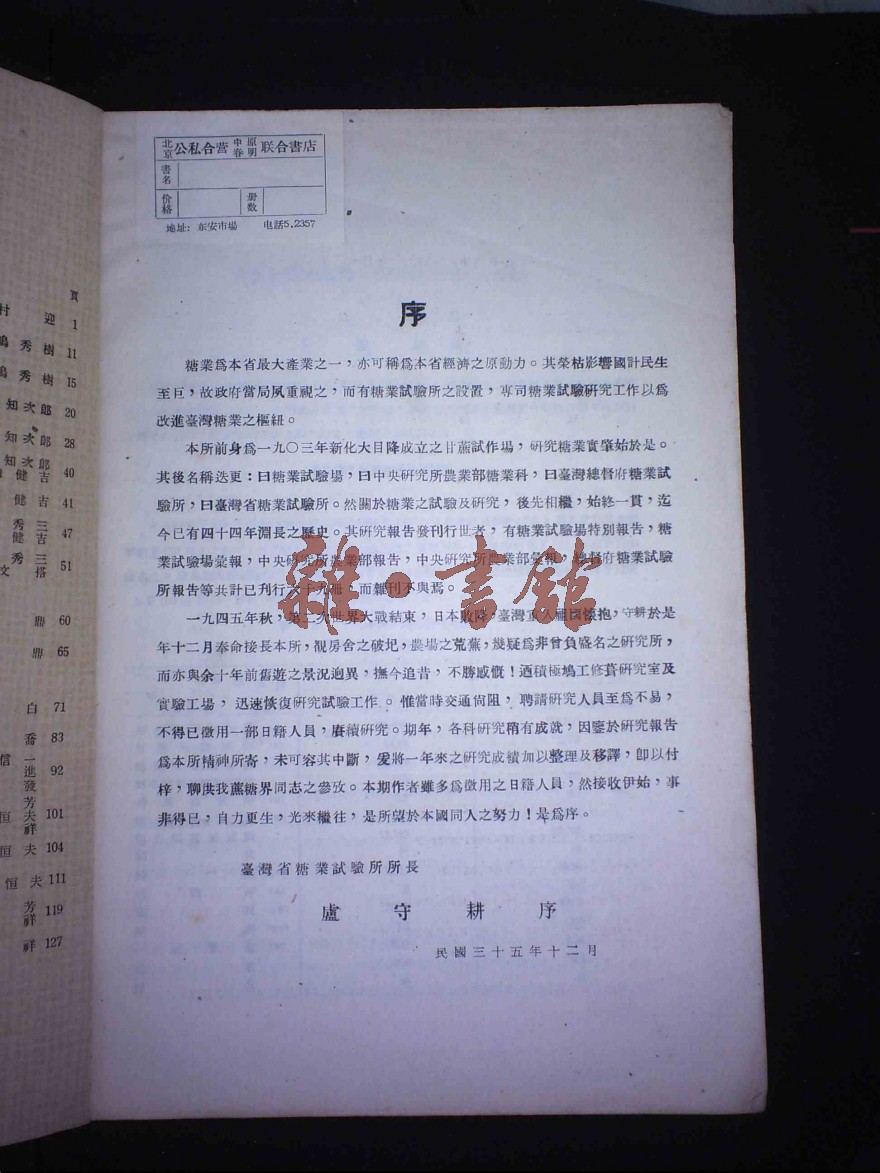 北京 公私合营 中原春明 联合書店
書名
价格 册数
地址: 东安市場 电話5.2357
序
糖業爲本省最大產業之一，亦可稱爲本省經濟之原動力。其榮枯影響國計民生
至巨，故政府當局夙重視之，而有糖業試驗所之設置，專司糖業試驗硏究工作以爲
改進臺灣糖業之樞紐。
本所前身爲一九〇三年新化大目降成立之甘蔗試作場，硏究糖業實肇始於是。
其後名稱迭更：曰糖業試驗場，曰中央硏究所農業部糖業科，曰臺灣總督府糖業試
驗所，曰臺灣省糖業試驗所。然關於糖業之試驗及硏究，後先相繼，始終一貫，迄
今已有四十四年淵長之歷史。其硏究報告發刊行世者，有糖業試驗場特別報告，糖
業試驗場彙報，中央硏究所農業部報告，中央硏究所農業部彙報，總督府糖業試驗
所報告等共計已刊行六十九冊，而雜刊不與焉。
一九四五年秋，第二次世界大戰結束，日本敗降，臺灣重入祖國懷抱，守耕於是
年十二月奉命接長本所，覩房舍之破圮，農場之荒蕪，幾疑爲非曾負盛名之硏究所，
而亦與余十年前舊遊之景况逈異，撫今追昔，不勝感慨！迺積極鳩工修葺硏究室及
實驗工場，迅速恢復硏究試驗工作。惟當時交通尙阻，聘請硏究人員至爲不易，
不得已徵用一部日籍人員，賡續硏究。期年，各科硏究稍有成就，因鑒於硏究報告
爲本所精神所寄，未可容其中斷，爰將一年來之硏究成績加以整理及移譯，卽以付
梓，聊洪我蔗糖界同志之參攷。本期作者雖多爲徵用之日籍人員，然接收伊始，事
非得已，自力更生，光來繼往，是所望於本國同人之努力！是爲序。
臺灣省糖業試驗所所長
盧守耕序
民國三十五年十二月
頁
村 迎 1
秀樹 11
秀樹 15
知次郎 20
知次郎 28
知次郎
健吉 40
健吉 41
秀三
健吉 47
秀三
文搭 51
鼎 60
鼎 65
白 71
喬 83
信一
進 92
發
芳
恒夫 101
祥
恒夫 104
恒夫 111
芳
祥 119
祥 127
雜·書館